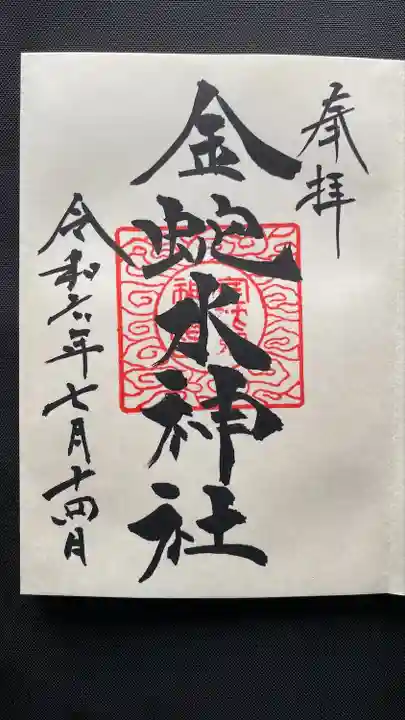 奉拝
金蛇水神社
令和六年七月十四日